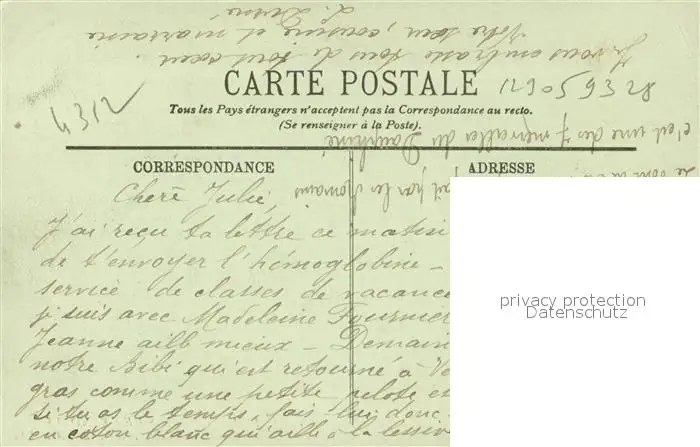 Je vous embrasse tous de tout coeur.
Votre soeur, cousine et marraine
L.
CARTE POSTALE
129059328
4312
Tous les Pays étrangers n'acceptent pas la Correspondance au recto.
(Se renseigner à la Poste).
c'est une des 7 merveilles du Dauphiné
par les Romains
Le
CORRESPONDANCE
ADRESSE
Chère Julie,
J'ai reçu ta lettre ce matin
de t'envoyer l'hémoglobine –
service de classes de vacance
je suis avec Madeleine Fournier
Jeanne aille mieux – Demain
notre Bibi qui est retourné à
gras comme une petite pelote et
si tu as le temps, fais lui donc
en coton blanc qui aille à la lessive
privacy protection
Datenschutz